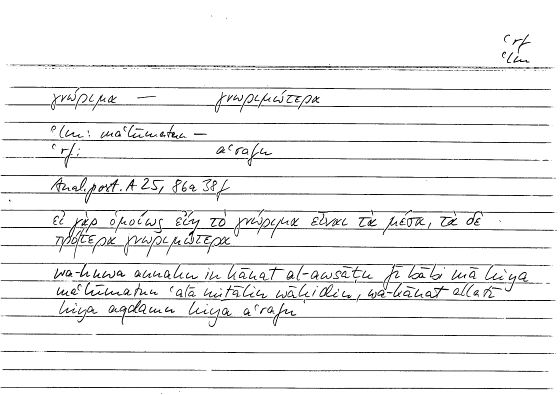 ʿrf
ʿlm
γνώριμα — γνωριμώτερα
ʿlm: maʿlūmatun —
ʿrf: aʿrafu
Anal. post. A 25, 86a 38f
εἰ γὰρ ὁμοίως εἴη τὸ γνώριμα εἶναι τὰ μέσα, τὰ δὲ
πρότερα γνωριμώτερα
wa-huwa annahu in kānat al-awsāṭu fī bābi mā hiya
maʿlūmatun ʿalā miṯālin wāḥidin, wa-kānat allatī
hiya aqdamu hiya aʿrafu